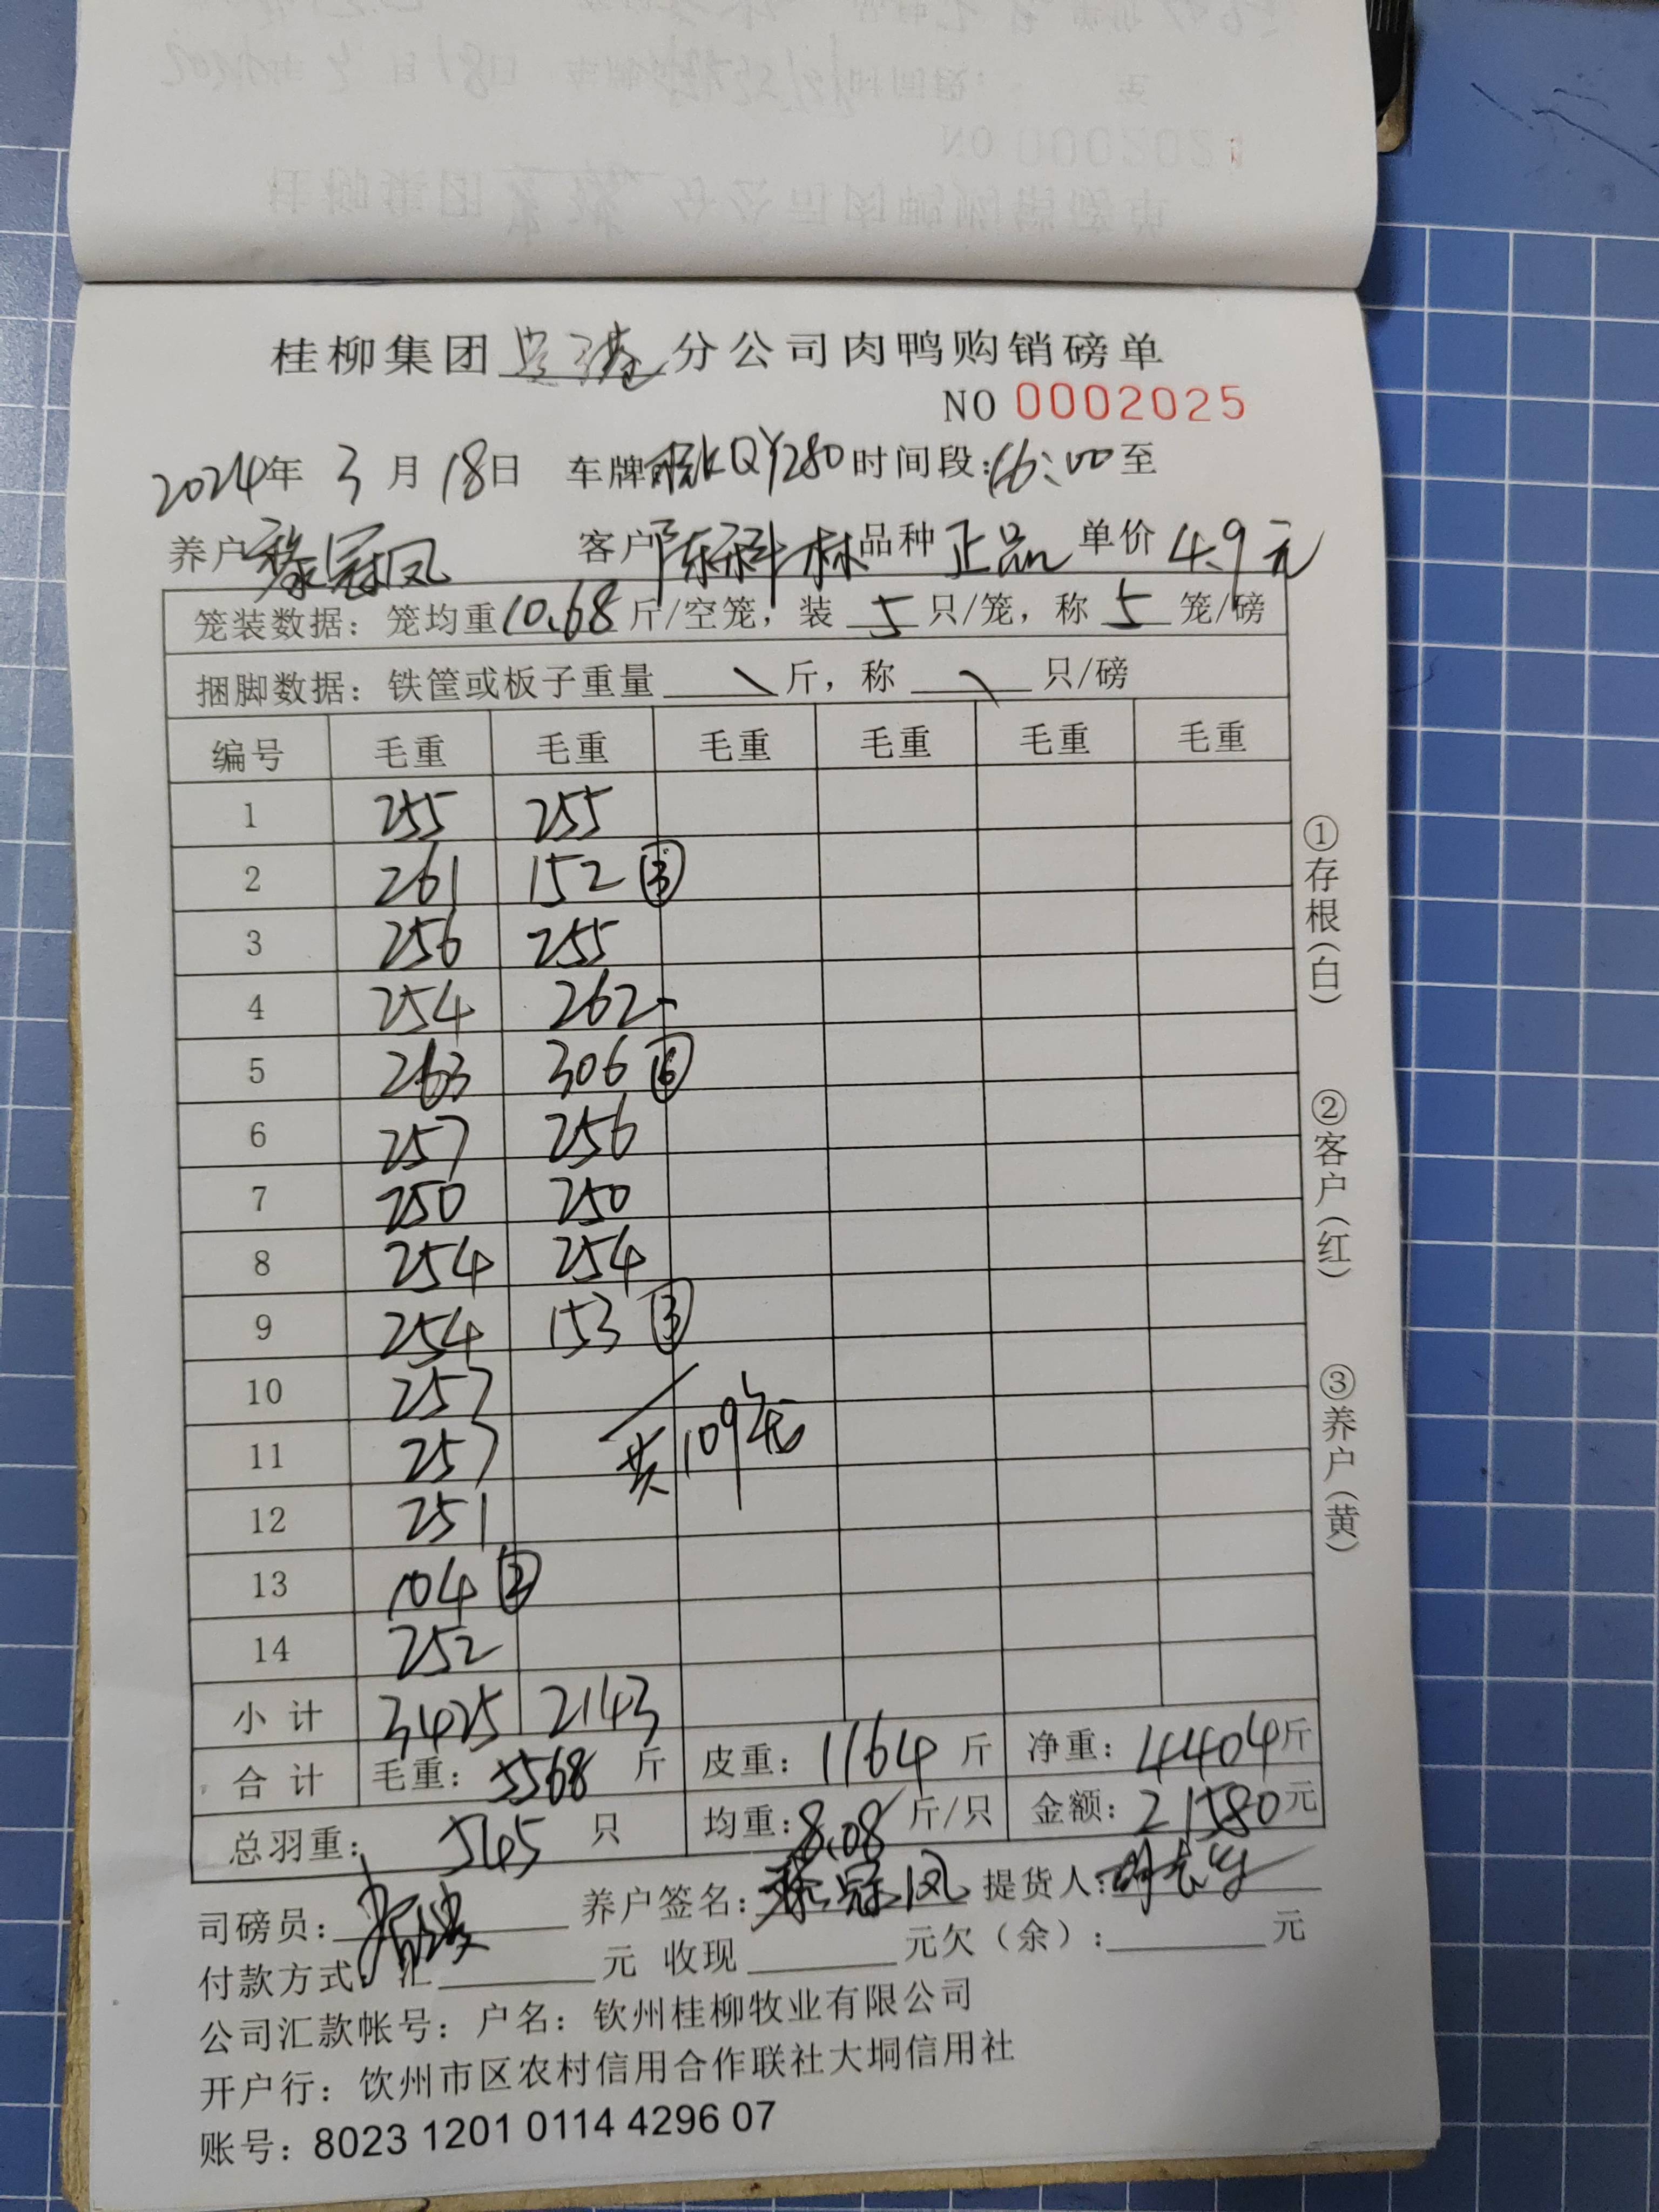 桂柳集团 贵港 分公司肉鸭购销磅单
NO 0002025
2024年 3 月 18日 车牌 QY280 时间段:16:00至
养户 黎冠凤 客户 陈科林 品种 正品 单价 4.9元
笼装数据：笼均重10.68斤/空笼，装 5 只/笼，称 5 笼/磅
捆脚数据：铁筐或板子重量 \ 斤，称 \ 只/磅
编号 毛重 毛重 毛重 毛重 毛重 毛重
1 255 255
2 261 152 ③
3 256 255
4 254 262
5 263 306 ⑥
6 257 256
7 250 250
8 254 254
9 254 153 ③
10 257
11 257 共109笼
12 251
13 104 ②
14 252
小计 3425 2143
合计 毛重：5568 斤 皮重：1164 斤 净重：4404斤
总羽重： 545 只 均重：8.08 斤/只 金额：21580元
司磅员： 养户签名：黎冠凤 提货人：
付款方式：汇 元 收现 元欠（余）： 元
公司汇款帐号：户名：钦州桂柳牧业有限公司
开户行：饮州市区农村信用合作联社大垌信用社
账号：8023 1201 0114 4296 07
①存根（白）
②客户（红）
③养户（黄）